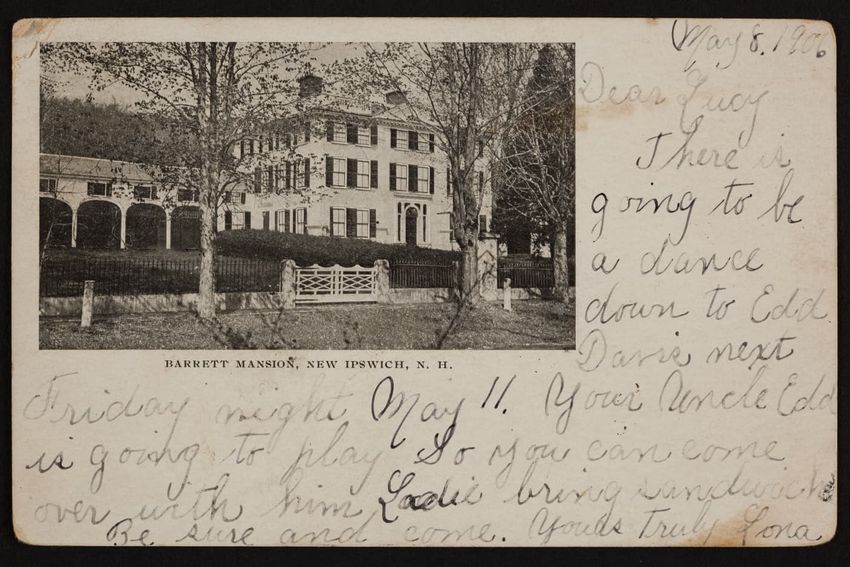 May 8, 1906
Dear Lucy
There is
going to be
a dance
down to Edd
Davis next
BARRETT MANSION, NEW IPSWICH, N. H.
Friday night May 11. Your Uncle Edd
is going to play So you can come
over with him Ladie bring sandwich
Be sure and come. Yours Truly Lona